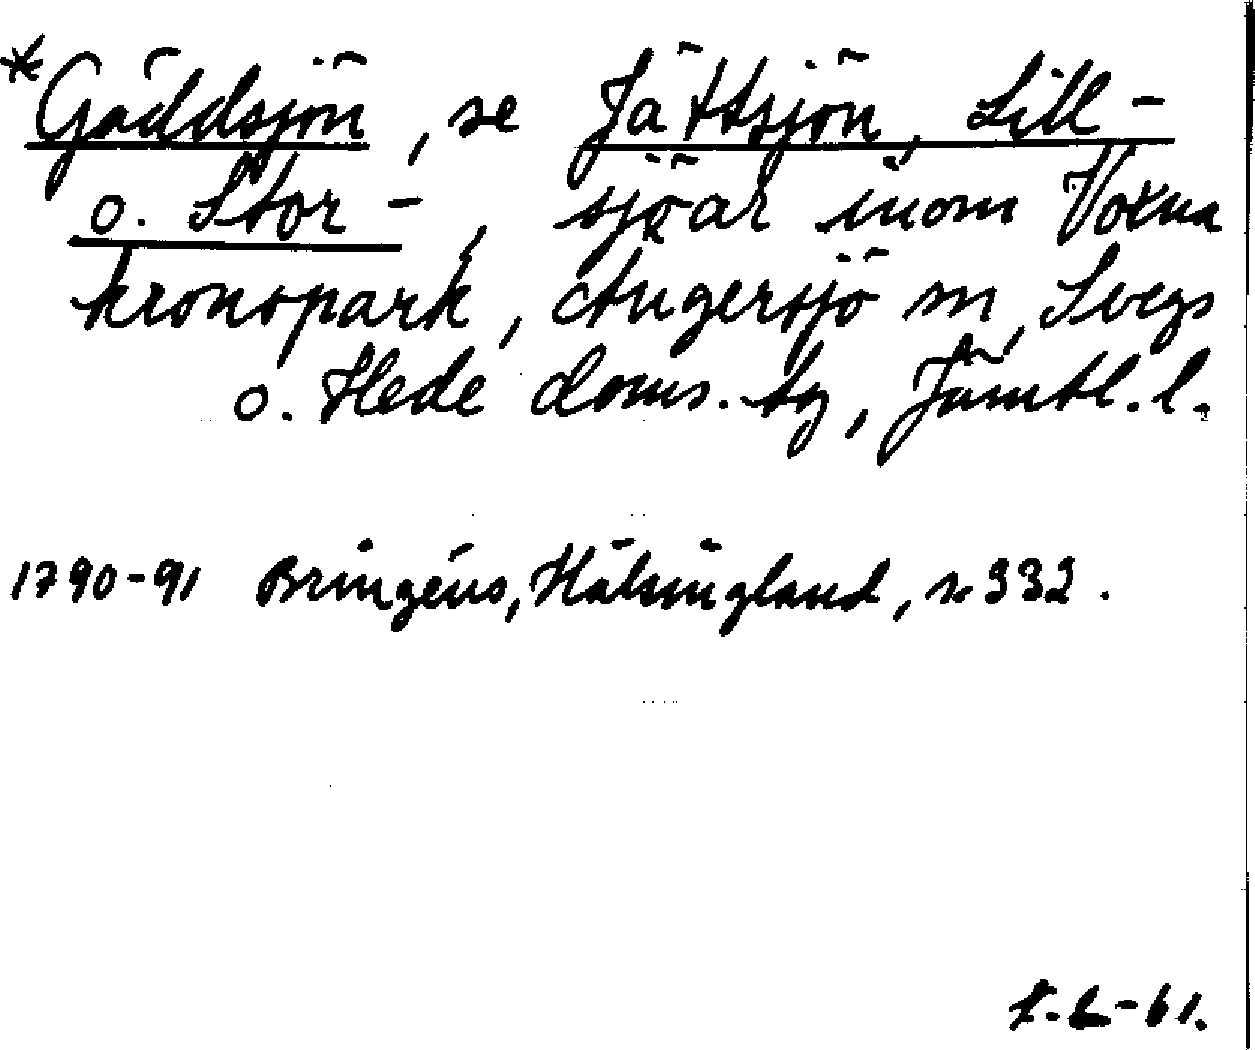 *Gäddsjön, se Jättsjön, Lill-
o. Stor-, sjöar inom Voxna
kronopark, Ängersjö sn, Svegs
o. Hede doms. tg, Jämtl. l.
1790-91 Bringéus, Hälsingland, s. 332.
-61.